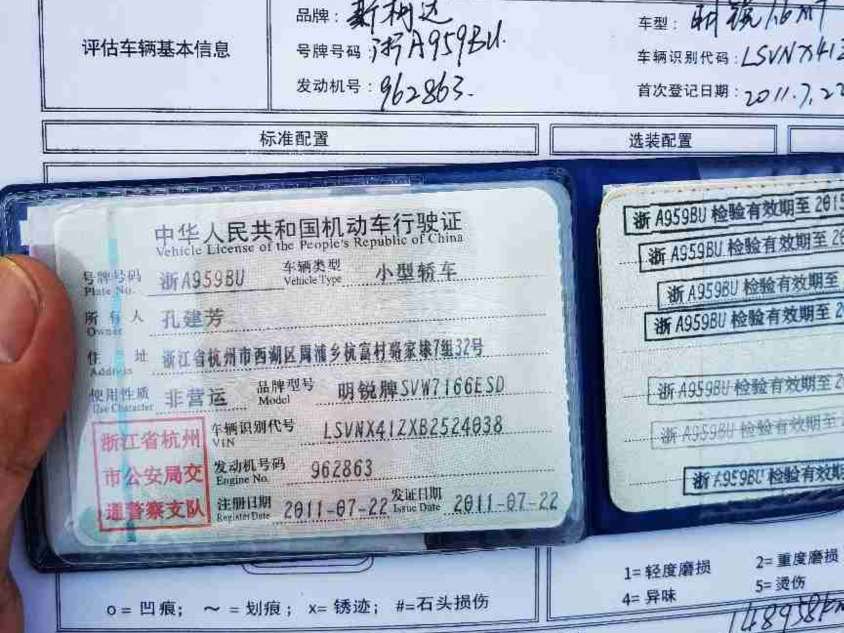 评估车辆基本信息
品牌：斯柯达
车型：明锐1.6MT
号牌号码：浙A959BU
车辆识别代码：LSVNX41Z
发动机号：962863
首次登记日期：2011.7.22
标准配置
选装配置
中华人民共和国机动车行驶证
Vehicle License of the People's Republic of China
号牌号码 浙A959BU 车辆类型 小型轿车
Plate No. Vehicle Type
所有人 孔建芳
Owner
住址 浙江省杭州市西湖区周浦乡杭富村骆家埭7组32号
Address
使用性质 非营运 品牌型号 明锐牌SVW7166ESD
Use Character Model
浙江省杭州市公安局交通警察支队
车辆识别代号 LSVNX41ZXB2524038
VIN
发动机号码 962863
Engine No.
注册日期 2011-07-22 发证日期 2011-07-22
Register Date Issue Date
浙A959BU 检验有效期至 2015
浙A959BU 检验有效期至 20
浙A959BU 检验有效期至
浙A959BU 检验有效期至 2
浙A959BU 检验有效期至 2
浙A959BU 检验有效期至
浙A959BU 检验有效期
o= 凹痕； ～= 划痕； x= 锈迹； #=石头损伤
1= 轻度磨损 2= 重度磨损
4= 异味 5= 烫伤
148958km